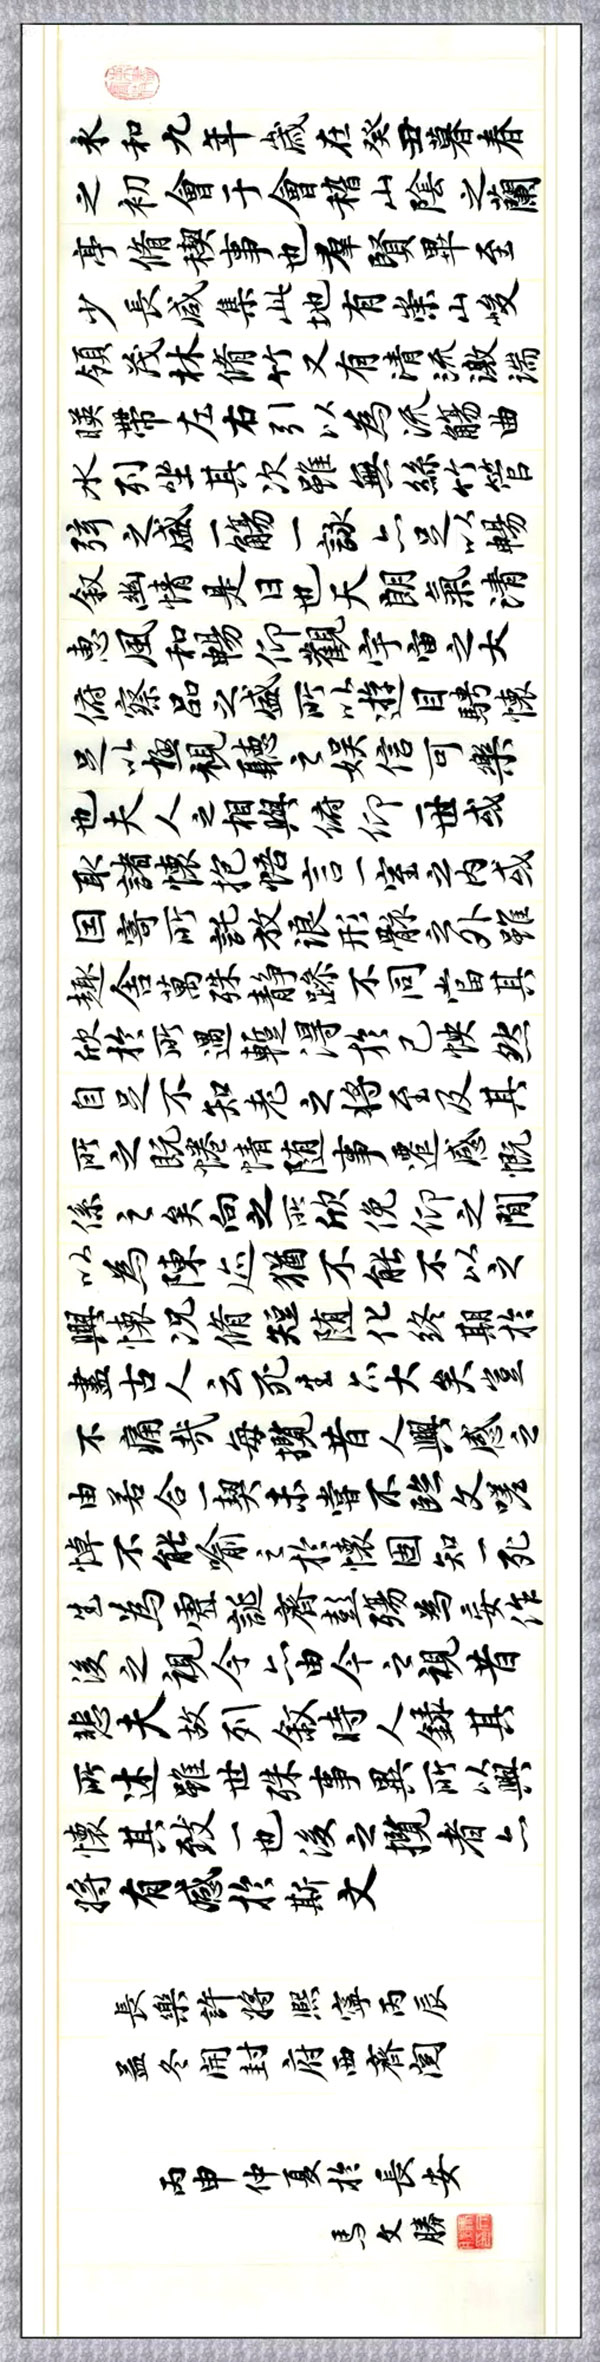 永和九年歲在癸丑暮春
之初會于會稽山陰之蘭
亭脩稧事也羣賢畢至
少長咸集此地有崇山峻
領茂林脩竹又有清流激湍
暎帶左右引以為流觴曲
水列坐其次雖無絲竹管
弦之盛一觴一詠亦足以暢
叙幽情是日也天朗氣清
惠風和暢仰觀宇宙之大
俯察品之盛所以遊目騁懷
足以極視聽之娛信可樂
也夫人之相與俯仰一世或
取諸懷抱悟言一室之内或
因寄所託放浪形骸之外雖
趣舍萬殊静躁不同當其
欣於所遇蹔得於己怏然
自足不知老之將至及其
所之既惓情随事遷感慨
係之矣向之所欣俛仰之閒
以為陳迹猶不能不以之
興懷況脩短随化終期於
盡古人云死生亦大矣豈
不痛哉每攬昔人興感之
由若合一契未嘗不臨文嗟
悼不能喻之於懷固知一死
生為虛誕齊彭殤為妄作
後之視今亦由今之視昔
悲夫故列叙時人錄其
所述雖世殊事異所以興
懷其致一也後之攬者亦
將有感於斯文
長樂許將熙寧丙辰
孟冬開封府西齋閱
丙申仲夏於長安
馬文勝